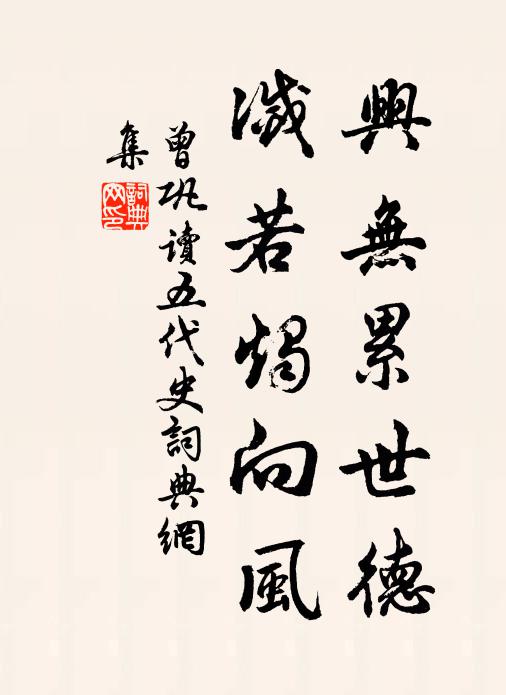 興無累世德
滅若燭向風
曾巩讀五代史詞典網
集
詞典
网印